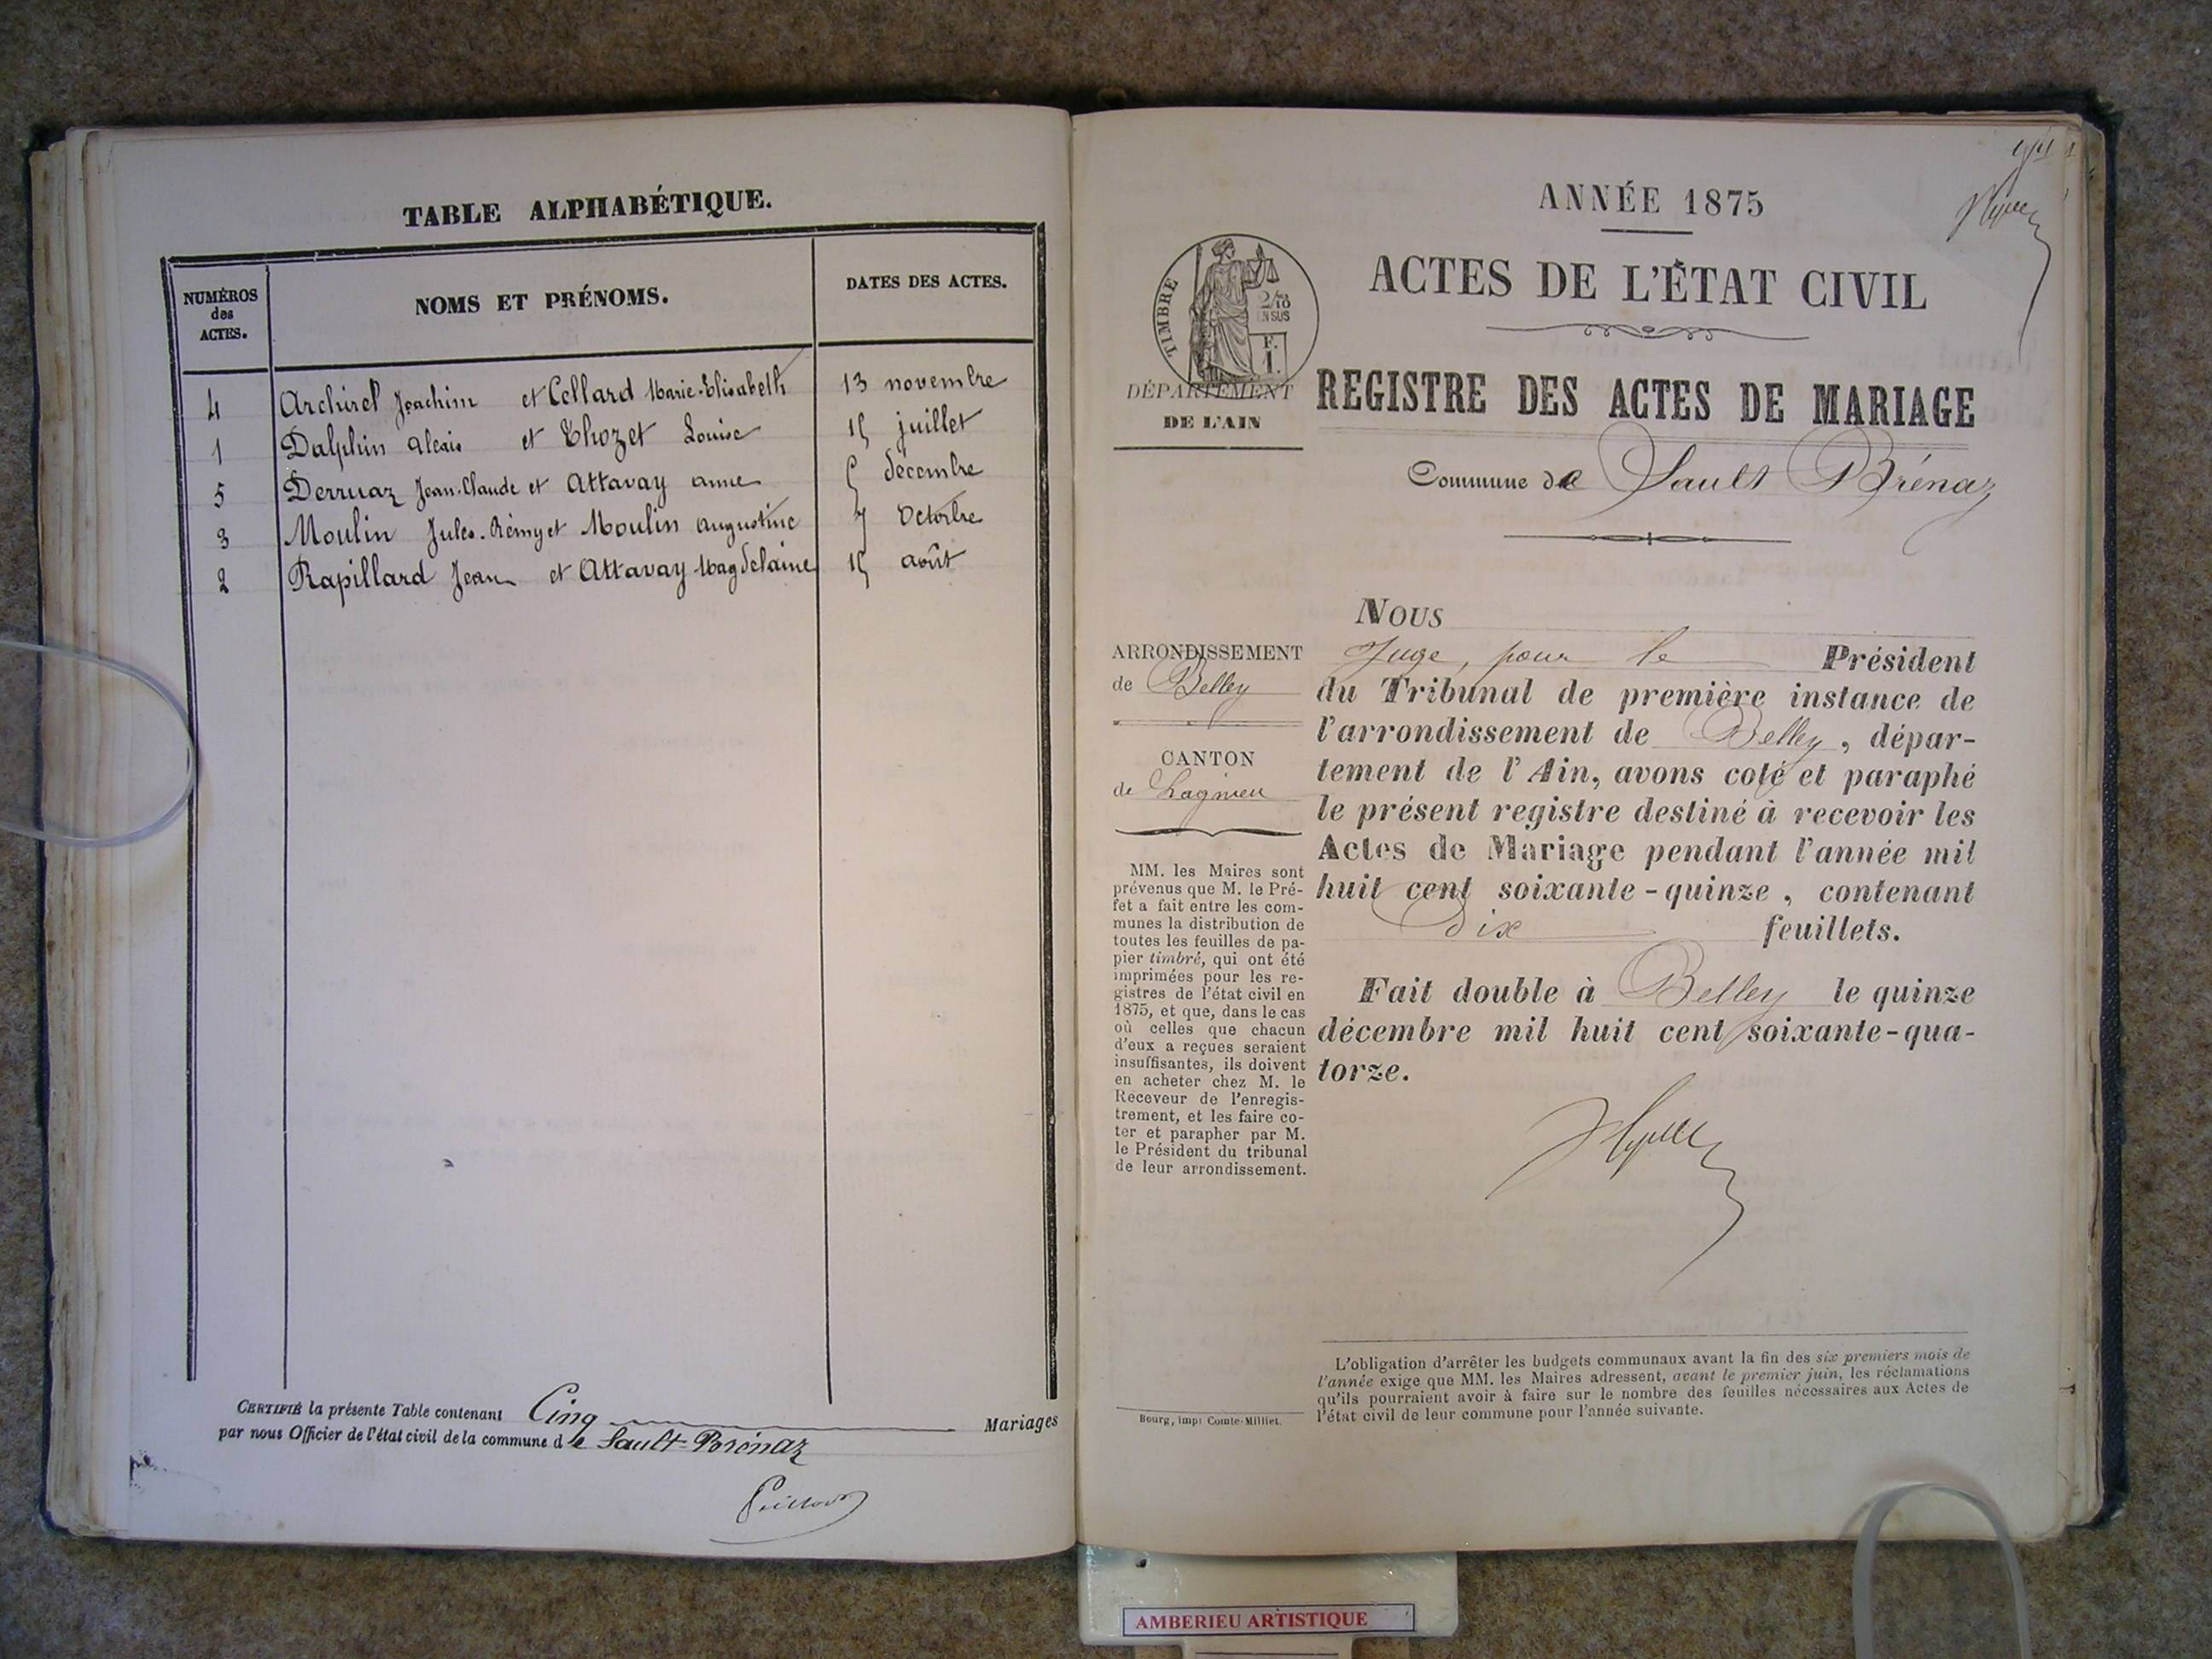 TABLE ALPHABÉTIQUE.
NUMÉROS
des
ACTES.
NOMS ET PRÉNOMS.
DATES DES ACTES.
4 Archirel Joachim et Cellard Marie-Elisabeth 13 novembre
1 Dalphin Alexis et Thozet Louise 15 juillet
5 Derruaz Jean-Claude et Attavay anne 5 décembre
3 Moulin Jules-Rémy et Moulin augustine 7 Octobre
2 Rapillard Jean et Attavay Magdelaine 15 août
CERTIFIÉ la présente Table contenant Cinq Mariages
par nous Officier de l'état civil de la commune de Sault-Brénaz
ANNÉE 1875
ACTES DE L'ÉTAT CIVIL
TIMBRE
2/10
EN SUS
F.
1.
DÉPARTEMENT
DE L'AIN
REGISTRE DES ACTES DE MARIAGE
Commune de Sault Brénaz
ARRONDISSEMENT
de Belley
CANTON
de Lagnieu
MM. les Maires sont
prévenus que M. le Pré-
fet a fait entre les com-
munes la distribution de
toutes les feuilles de pa-
pier timbré, qui ont été
imprimées pour les re-
gistres de l'état civil en
1875, et que, dans le cas
où celles que chacun
d'eux a reçues seraient
insuffisantes, ils doivent
en acheter chez M. le
Receveur de l'enregis-
trement, et les faire co-
ter et parapher par M.
le Président du tribunal
de leur arrondissement.
Bourg, impr Comte-Milliet.
NOUS
Juge, pour le Président
du Tribunal de première instance de
l'arrondissement de Belley, dépar-
tement de l'Ain, avons coté et paraphé
le présent registre destiné à recevoir les
Actes de Mariage pendant l'année mil
huit cent soixante-quinze, contenant
Dix feuillets.
Fait double à Belley le quinze
décembre mil huit cent soixante-qua-
torze.
L'obligation d'arrêter les budgets communaux avant la fin des six premiers mois de
l'année exige que MM. les Maires adressent, avant le premier juin, les réclamations
qu'ils pourraient avoir à faire sur le nombre des feuilles nécessaires aux Actes de
l'état civil de leur commune pour l'année suivante.
AMBERIEU ARTISTIQUE